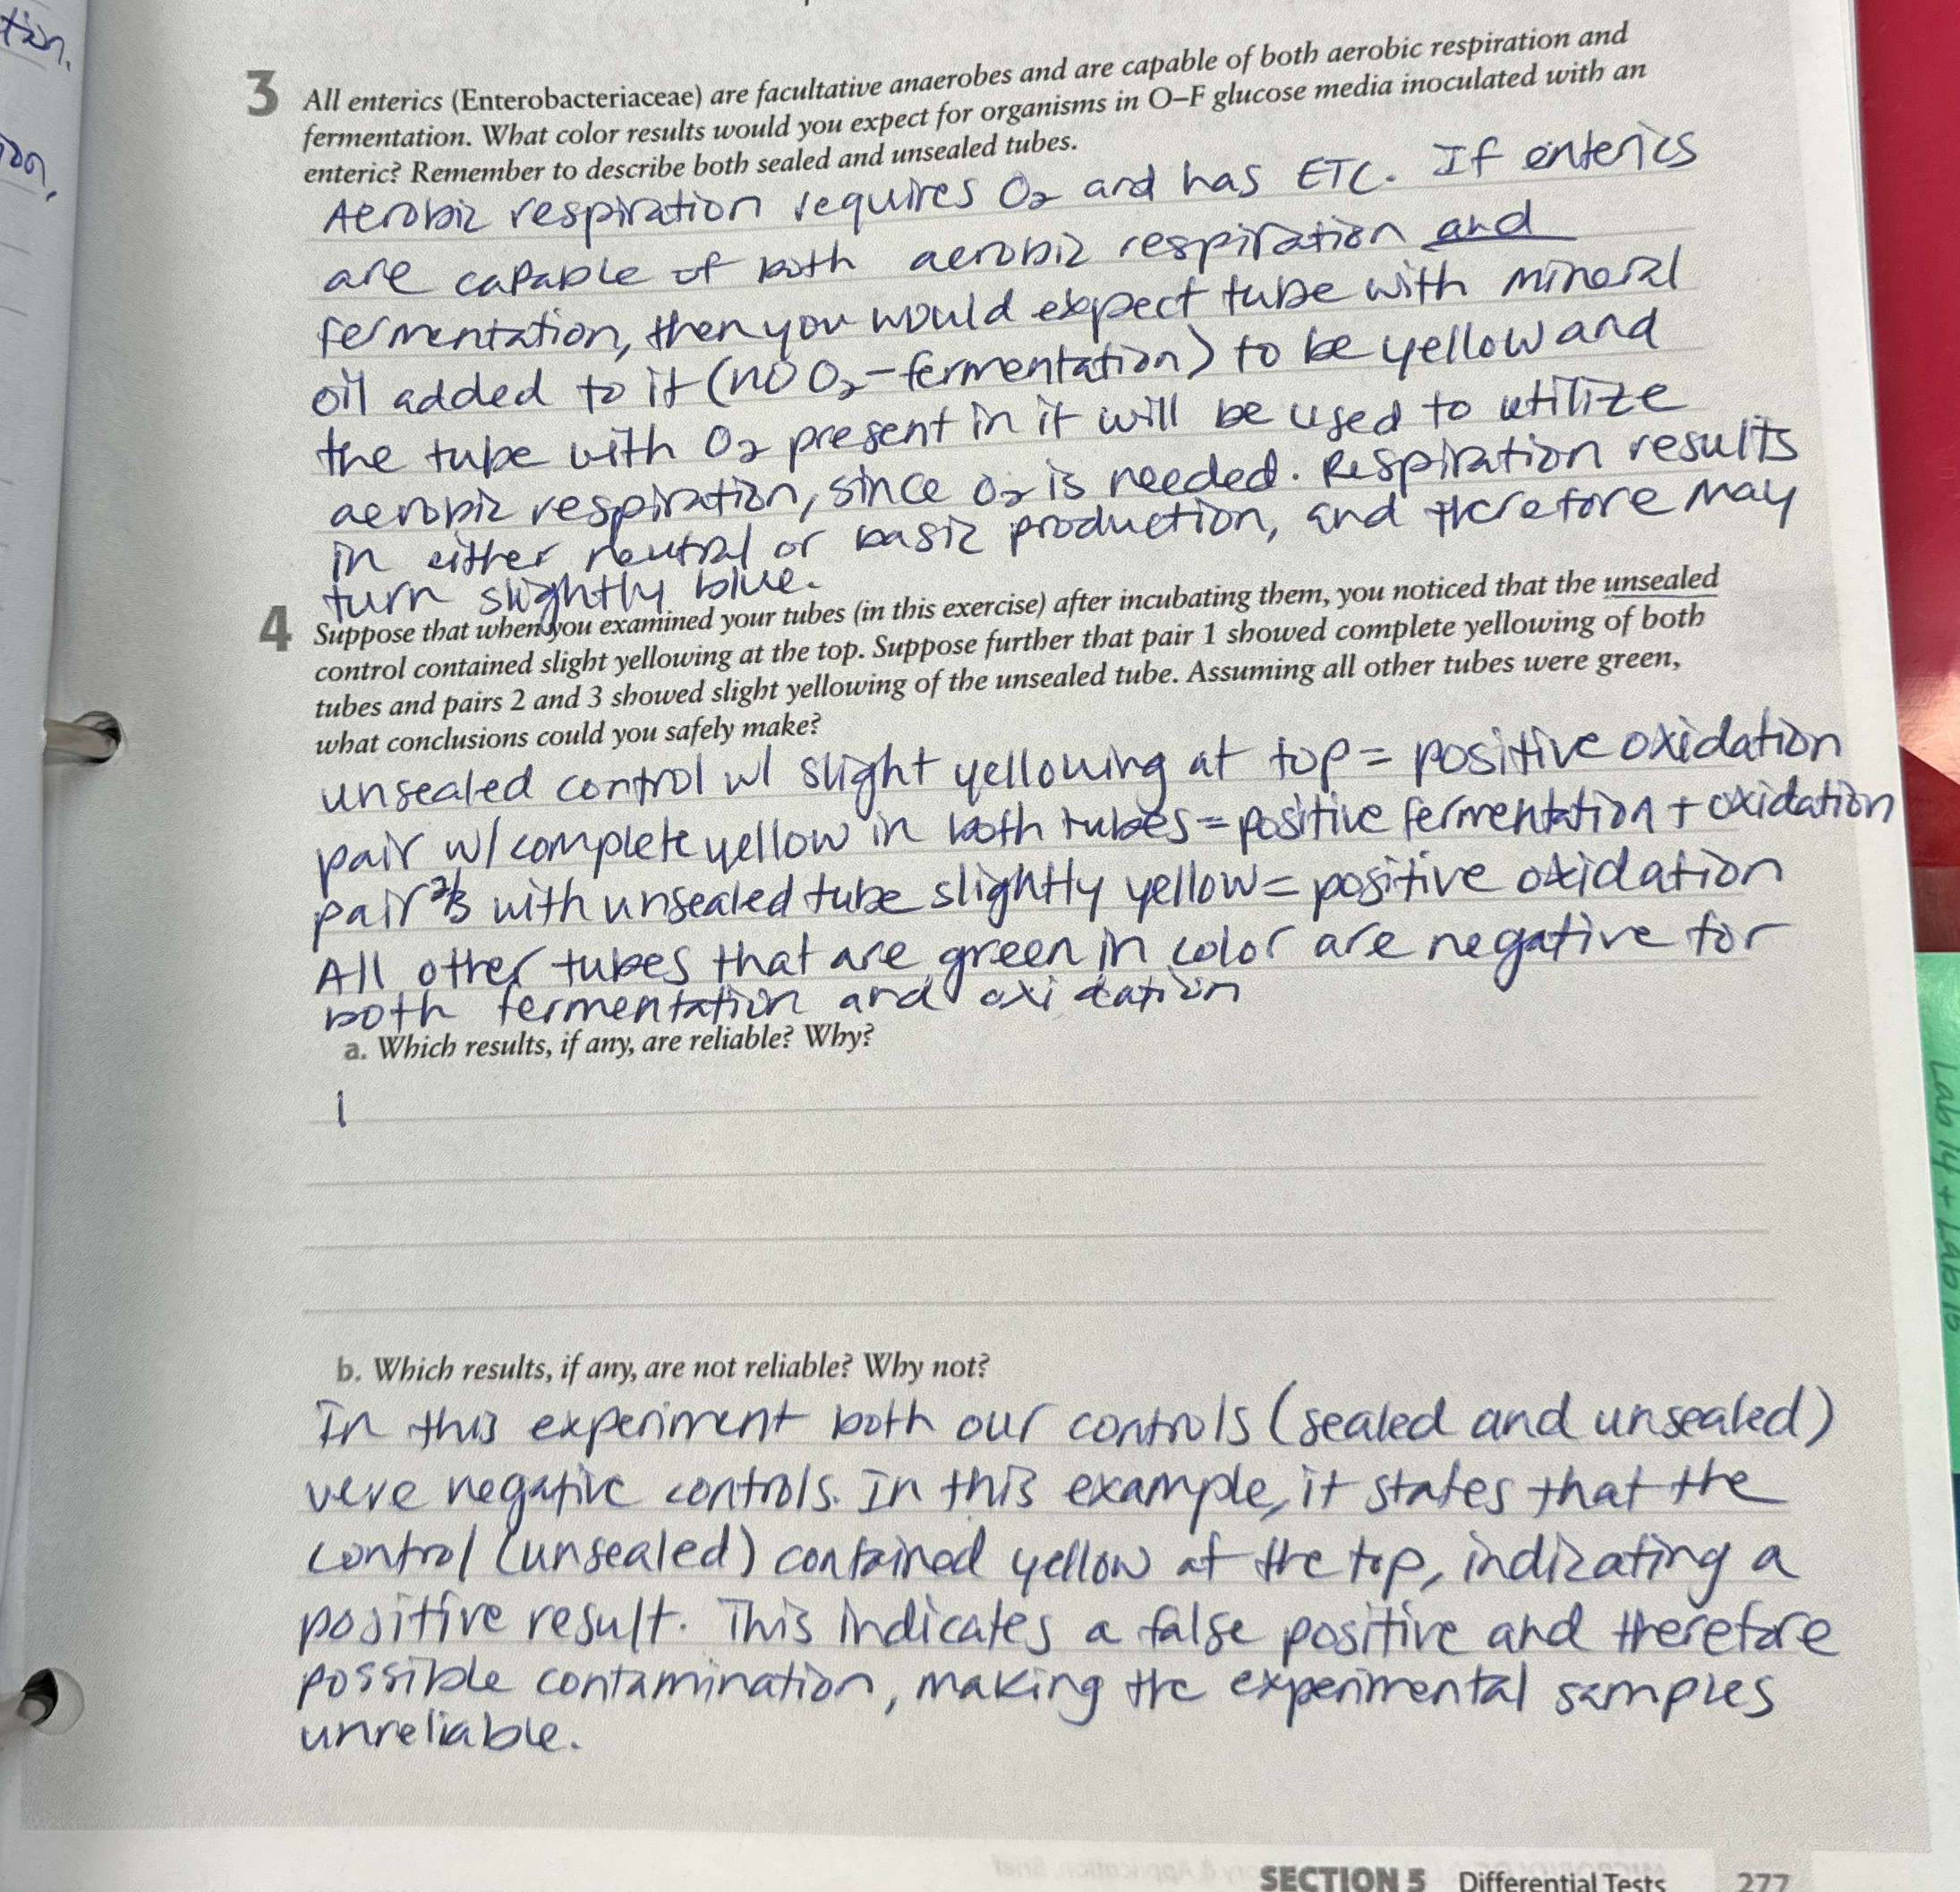 tion.
3 All enterics (Enterobacteriaceae) are facultative anaerobes and are capable of both aerobic respiration and
fermentation. What color results would you expect for organisms in O–F glucose media inoculated with an
enteric? Remember to describe both sealed and unsealed tubes.
Aerobic respiration requires O2 and has ETC. If enterics
are capable of both aerobic respiration and
fermentation, then you would expect tube with mineral
oil added to it (no O2-fermentation) to be yellow and
the tube with O2 present in it will be used to utilize
aerobic respiration, since O2 is needed. Respiration results
in either neutral or basic production, and therefore may
turn slightly blue.
4 Suppose that when you examined your tubes (in this exercise) after incubating them, you noticed that the unsealed
control contained slight yellowing at the top. Suppose further that pair 1 showed complete yellowing of both
tubes and pairs 2 and 3 showed slight yellowing of the unsealed tube. Assuming all other tubes were green,
what conclusions could you safely make?
unsealed control w/ slight yellowing at top = positive oxidation
pair w/ complete yellow in both tubes = positive fermentation + oxidation
pair 2/3 with unsealed tube slightly yellow = positive oxidation
All other tubes that are green in color are negative for
both fermentation and oxidation
a. Which results, if any, are reliable? Why?
b. Which results, if any, are not reliable? Why not?
In this experiment both our controls (sealed and unsealed)
were negative controls. In this example, it states that the
control (unsealed) contained yellow at the top, indicating a
positive result. This indicates a false positive and therefore
possible contamination, making the experimental samples
unreliable.
SECTION 5 Differential Tests 277
Lab 14 + Lab 15